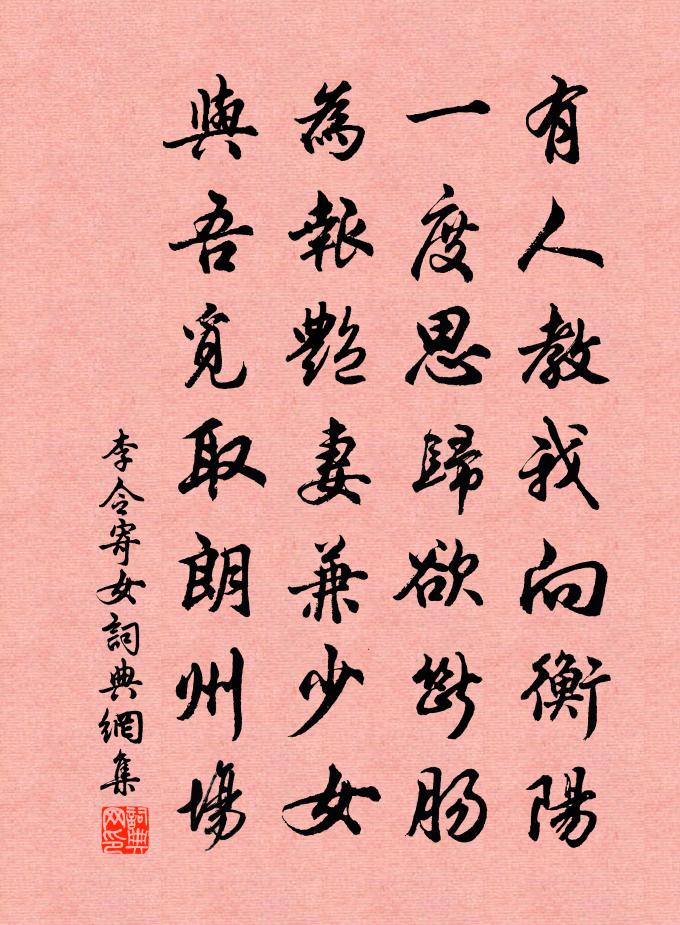 有人教我向衡陽
一度思歸欲斷腸
為報艷妻兼少女
與吾覓取朗州場
李令寄女詞典網集
詞典网印